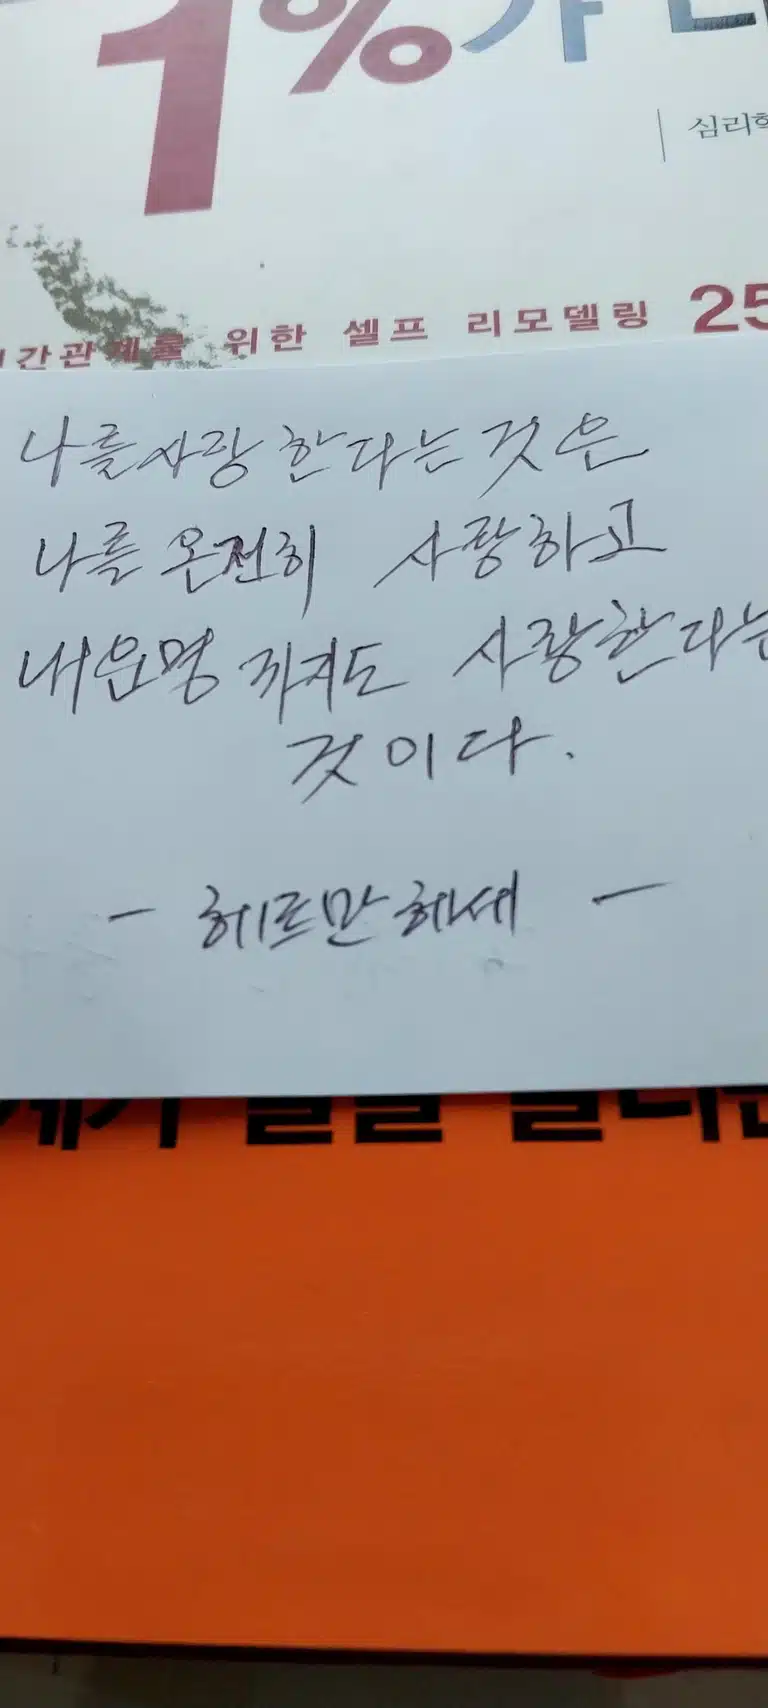 1%가
심리학
인간관계를 위한 셀프 리모델링 25
나를 사랑한다는 것은
나를 온전히 사랑하고
내 운명까지도 사랑한다는
것이다.
- 헤르만 헤세 -